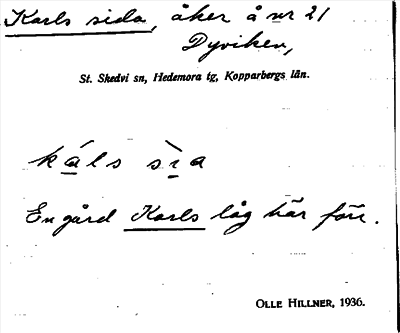 Karls sida, åker å nr 21
Dyviken,
St. Skedvi sn, Hedemora tg, Kopparbergs län.
káls sìa
En gård Karls låg här förr.
OLLE HILLNER, 1936.